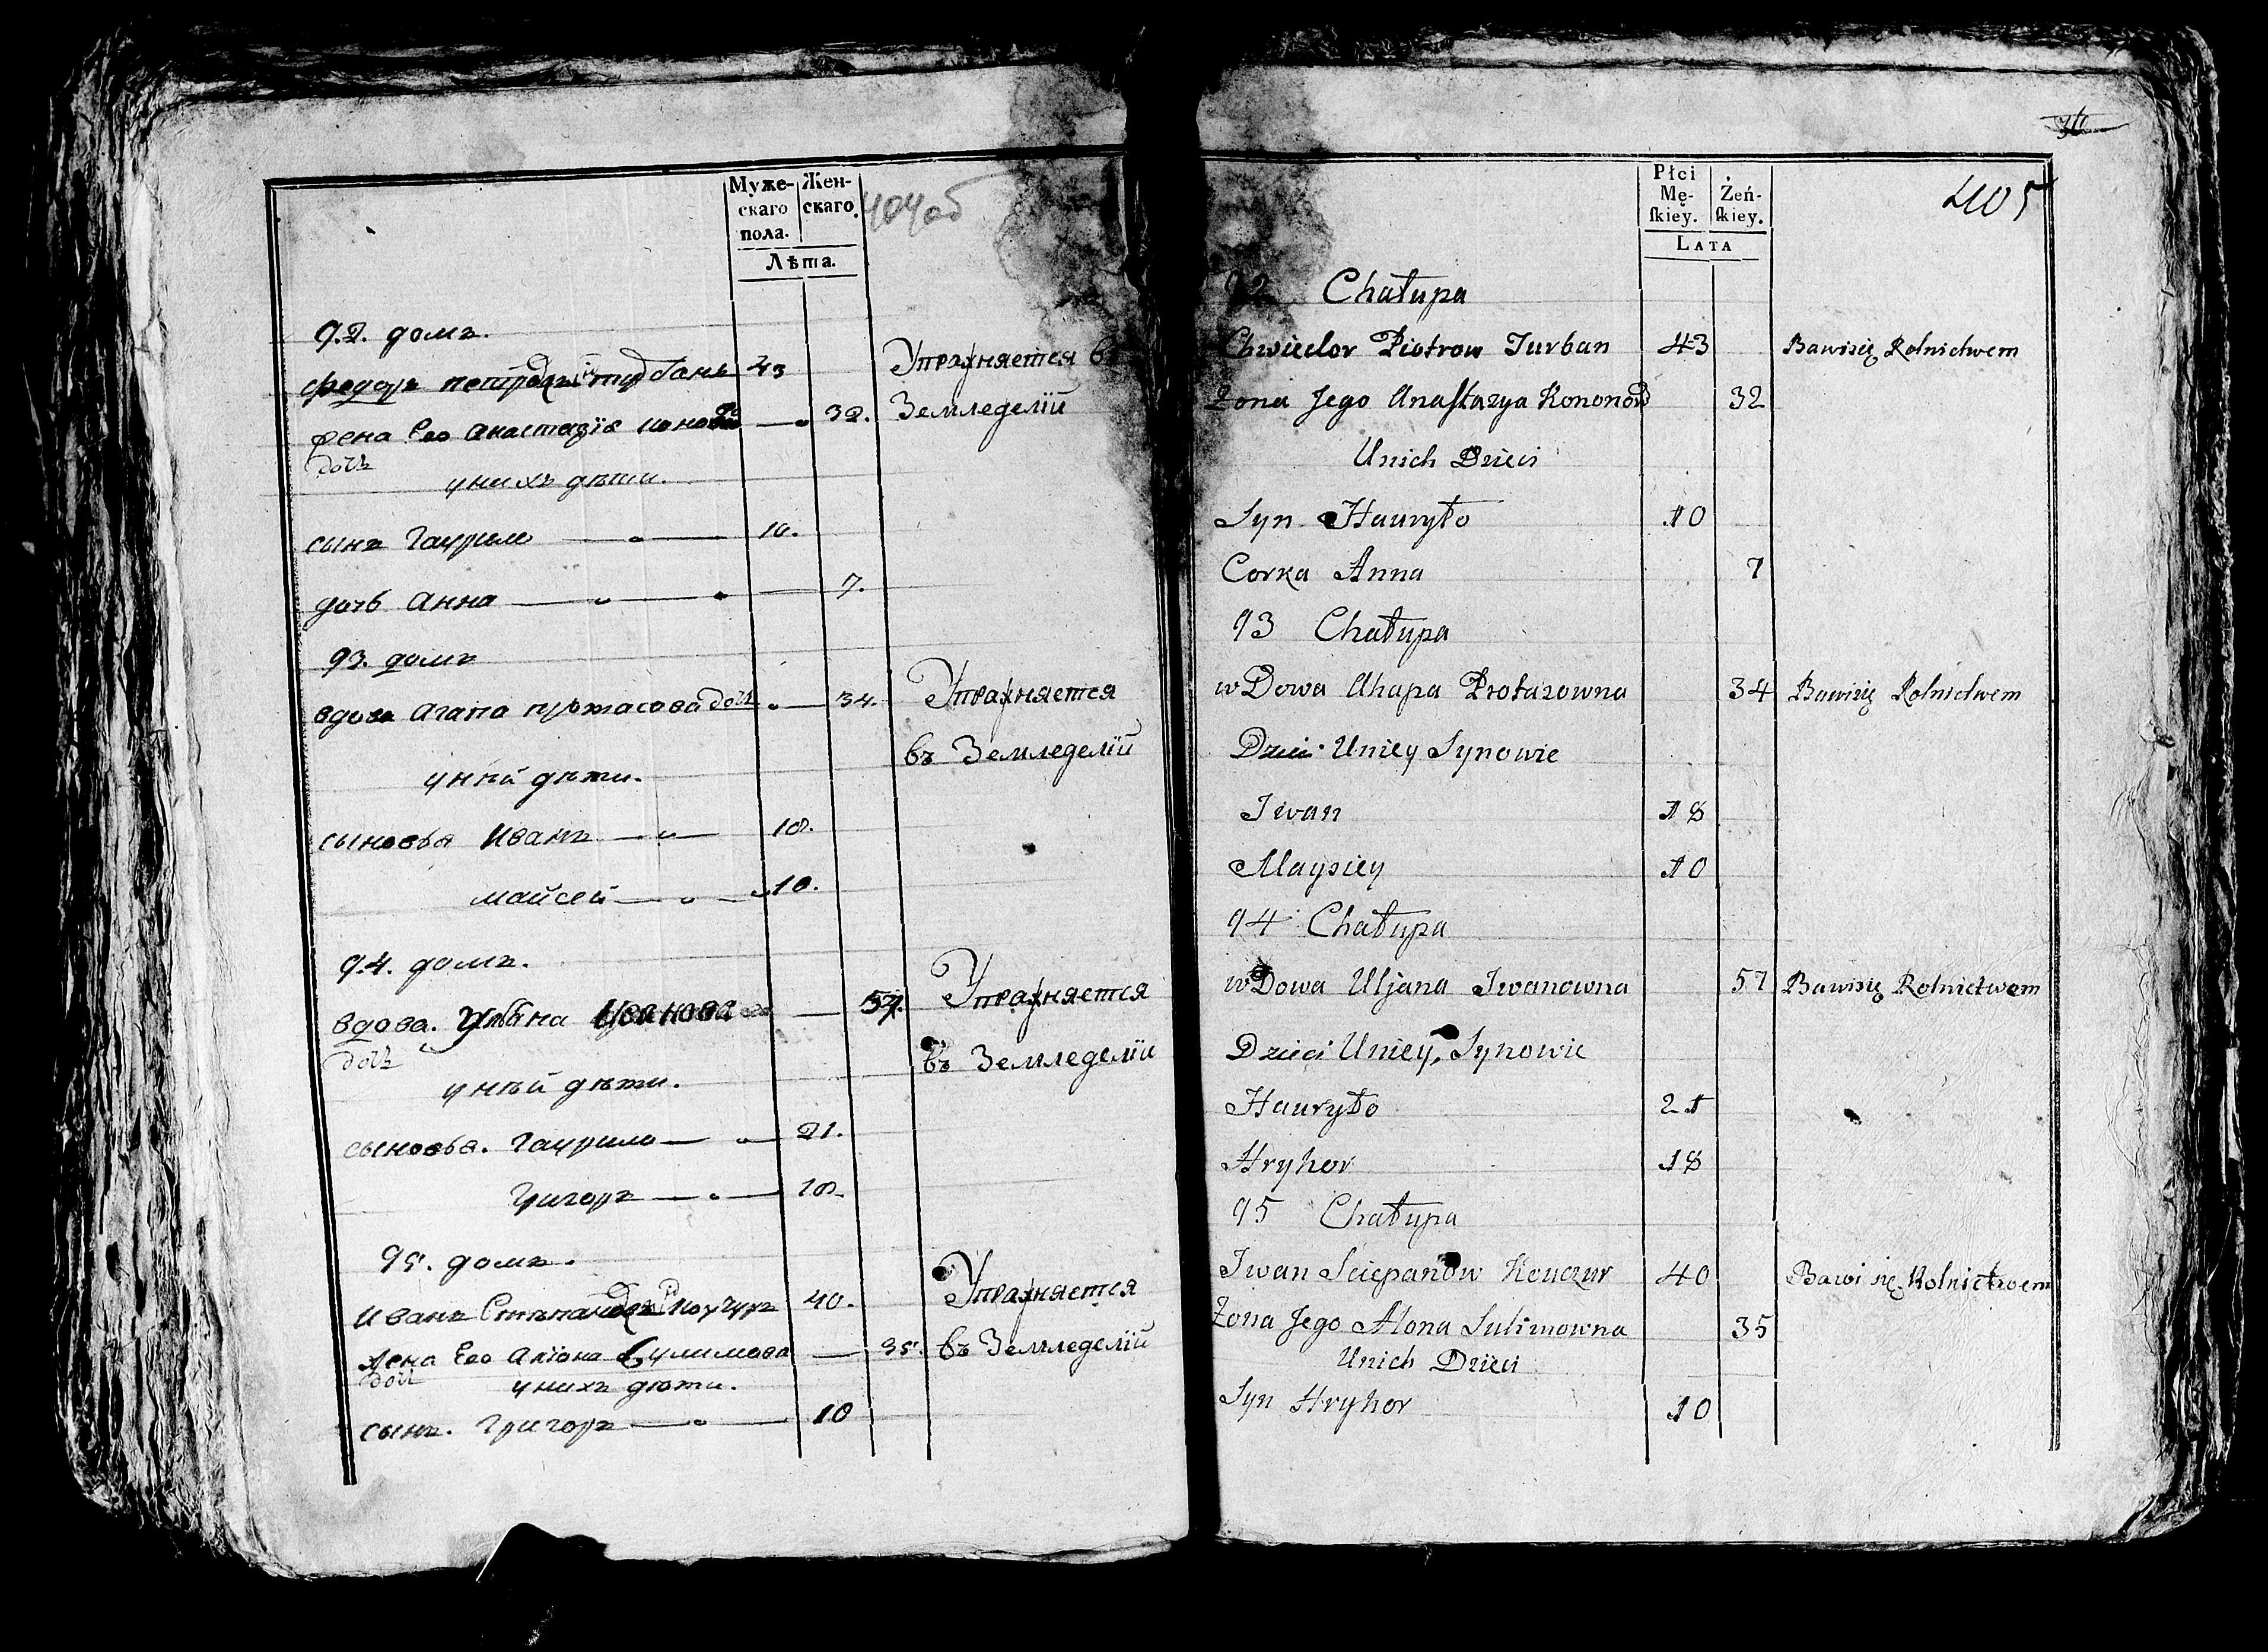 Муже-
скаго
пола.
Жен-
скаго.
Лѣта.
404об
92. домъ.
Федоръ Турбанъ 43 Упражняется въ
жена Ево Анастазія Конова 32. Земледелїи
дочь
унихъ дѣти.
сынъ Гаурило 10.
дочь Анна 7.
93. домъ
вдова Агапа протасова дочь 34. Упражняется
въ Земледелїи
уней дѣти.
сыновья Иванъ 18.
майсей 10.
94. домъ.
вдова. Ульяна Иванова 57. Упражняется
дочь въ Земледелїи
уней дѣти.
сыновья. Гаурило 21.
Григоръ 18.
95. домъ.
Иванъ 40. Упражняется
жена Ево Алона Сулимова 35. въ Земледелїи
дочь
унихъ дѣти.
сынъ. Григоръ 10
Płci
Mę-
ſkiey.
Żeń-
ſkiey.
LATA
405
92 Chałupa
Chwiedor Piotrow Turban 43 Bawisię Rolnictwem
Żona Jego Anaſtazya Kononow 32
Unich Dzieci
Syn Hauryło 10
Corka Anna 7
93 Chałupa
wDowa Ahapa Protazowna 34 Bawisię Rolnictwem
Dzieci Uniey Synowie
Iwan 18
Maysiey 10
94 Chałupa
wDowa Uljana Iwanowna 57 Bawisię Rolnictwem
Dzieci Uniey, Synowie
Hauryło 21
Hryhor 18
95 Chałupa
Iwan Sciepanow Kouczur 40 Bawi się Rolnictwem
Żona Jego Alona Sulimowna 35
Unich Dzieci
Syn Hryhor 10